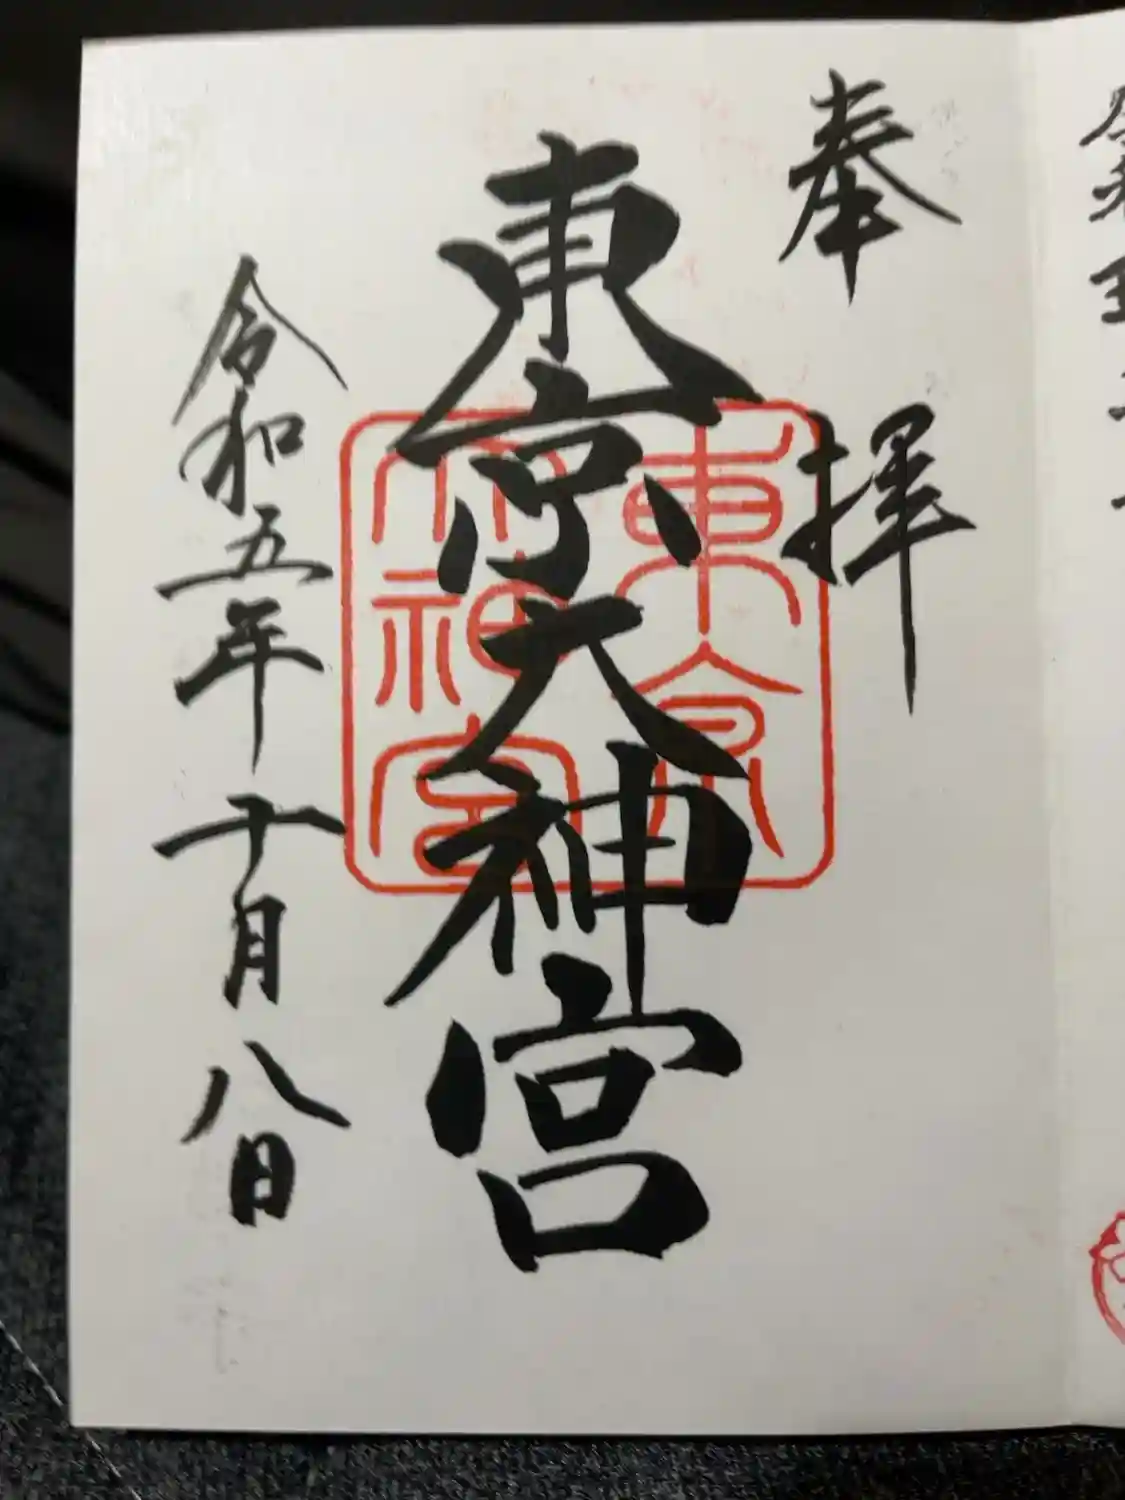 奉拝
東京大神宮
東京大神宮
令和五年十月八日